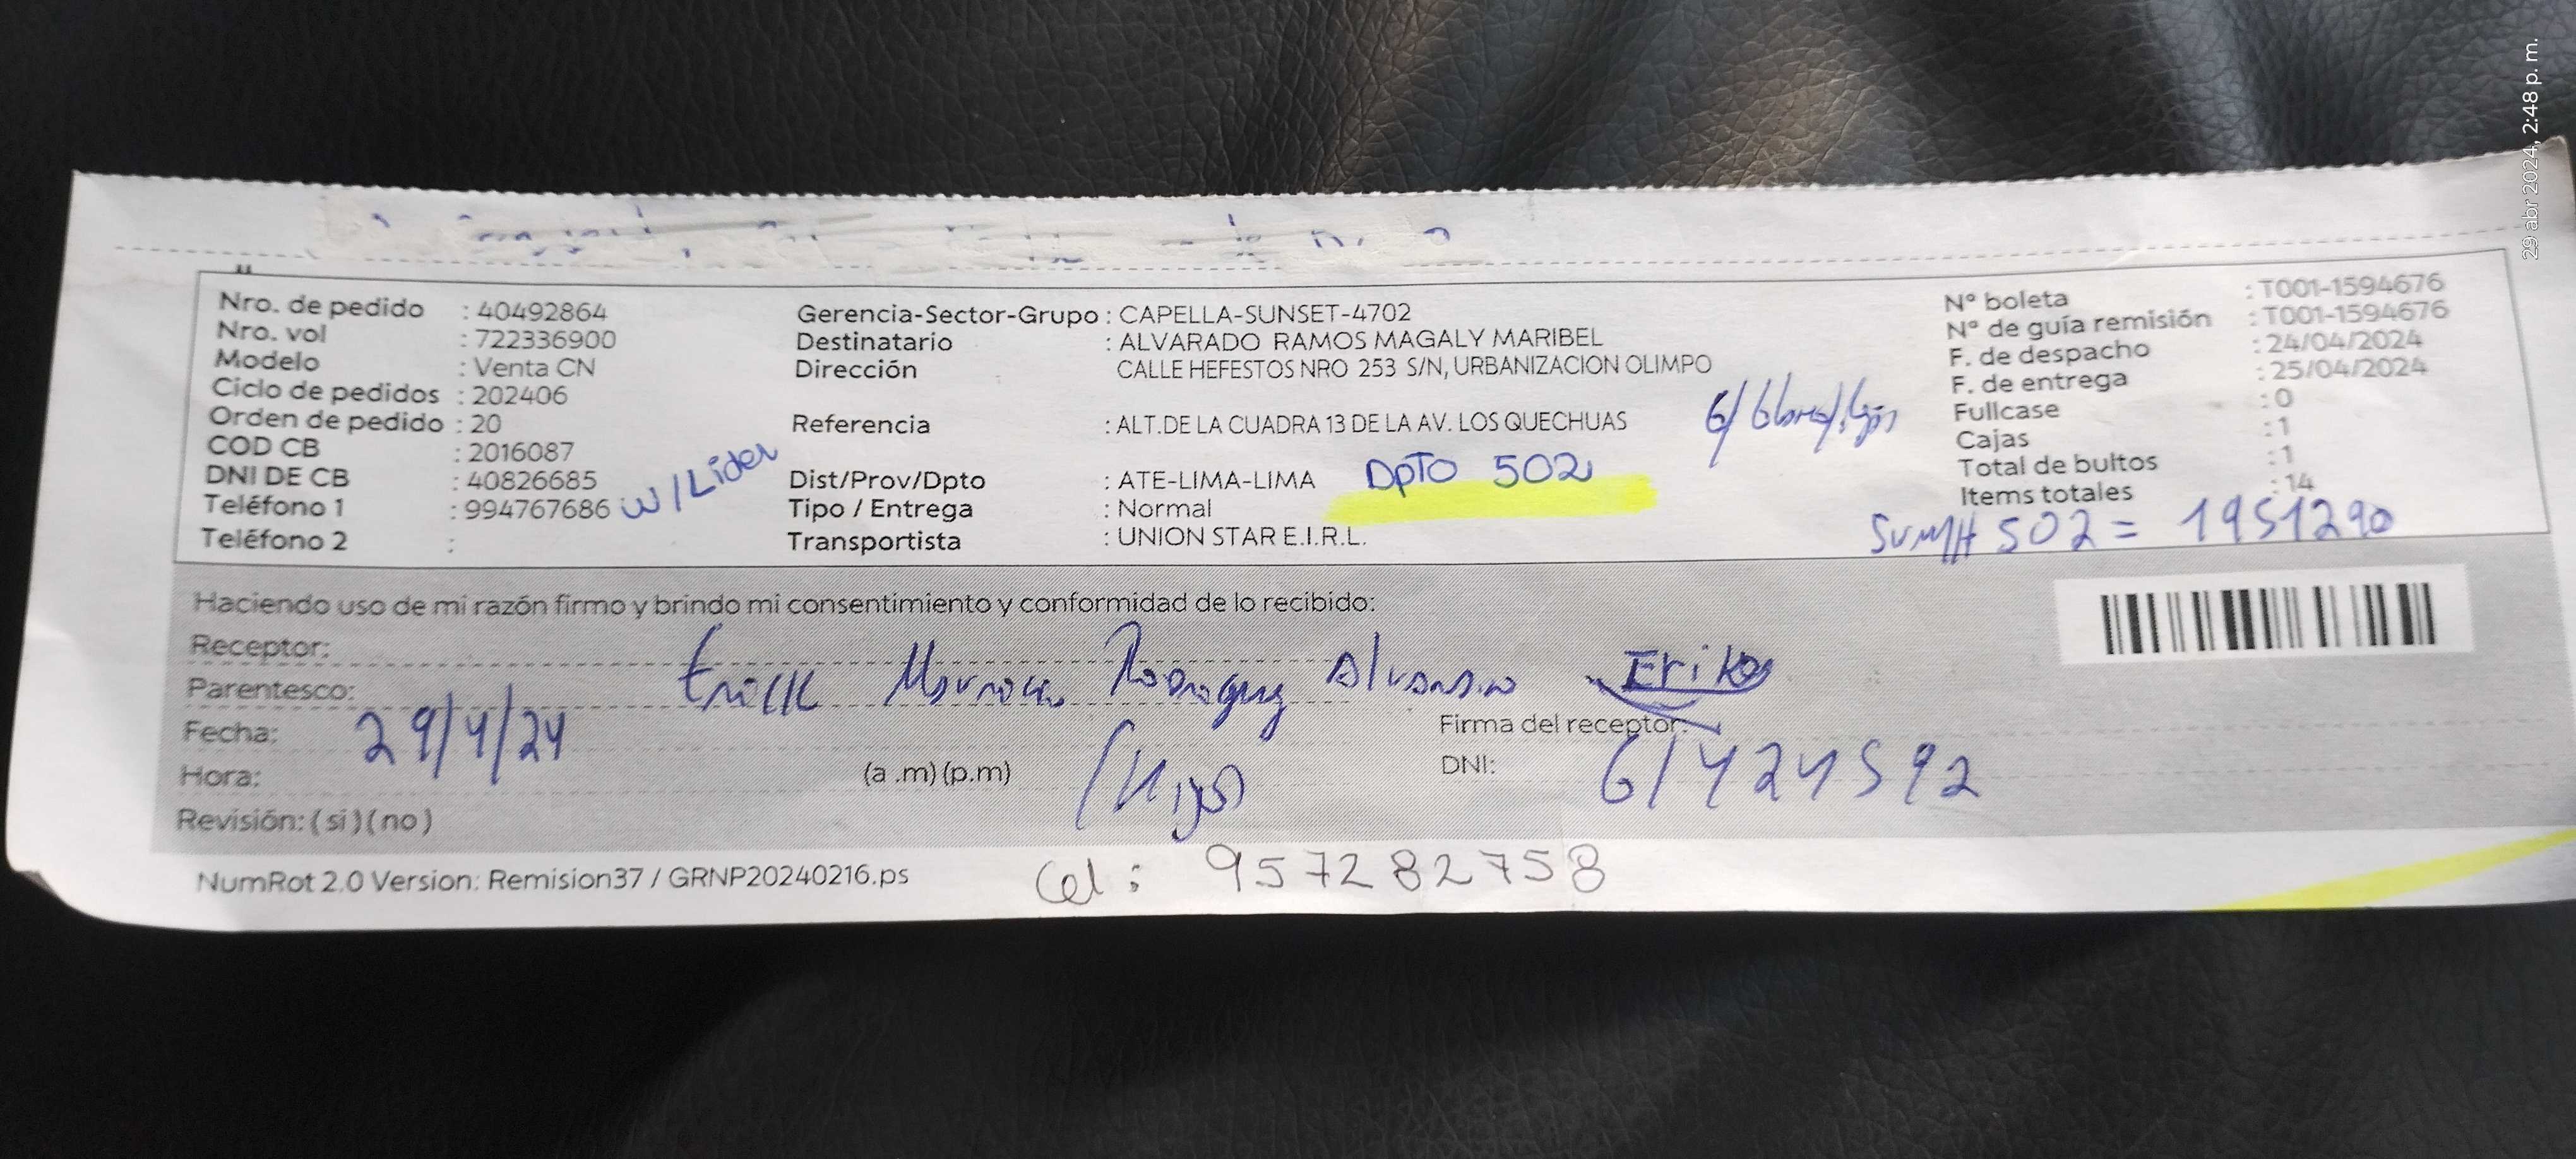 29 abr 2024, 2:48 p. m.
Nro. de pedido : 40492864
Nro. vol : 722336900
Modelo : Venta CN
Ciclo de pedidos : 202406
Orden de pedido : 20
COD CB : 2016087
DNI DE CB : 40826685
Teléfono 1 : 994767686 w/Lider
Teléfono 2 :
Gerencia-Sector-Grupo : CAPELLA-SUNSET-4702
Destinatario : ALVARADO RAMOS MAGALY MARIBEL
Dirección CALLE HEFESTOS NRO 253 S/N, URBANIZACION OLIMPO
Referencia : ALT.DE LA CUADRA 13 DE LA AV. LOS QUECHUAS
Dist/Prov/Dpto : ATE-LIMA-LIMA DpTO 502
Tipo / Entrega : Normal
Transportista : UNION STAR E.I.R.L.
N° boleta : T001-1594676
N° de guía remisión : T001-1594676
F. de despacho : 24/04/2024
F. de entrega : 25/04/2024
Fullcase : 0
Cajas : 1
Total de bultos : 1
Items totales : 14
502 = 1951290
Haciendo uso de mi razón firmo y brindo mi consentimiento y conformidad de lo recibido:
Receptor:
Parentesco: Rodriguez Alvarado
Fecha: 29/4/24
Firma del receptor:
Hora: (a .m) (p.m) /Hijo
DNI: 61424592
Revisión: ( si ) ( no )
NumRot 2.0 Version: Remision37 / GRNP20240216.ps
Cel: 957282758